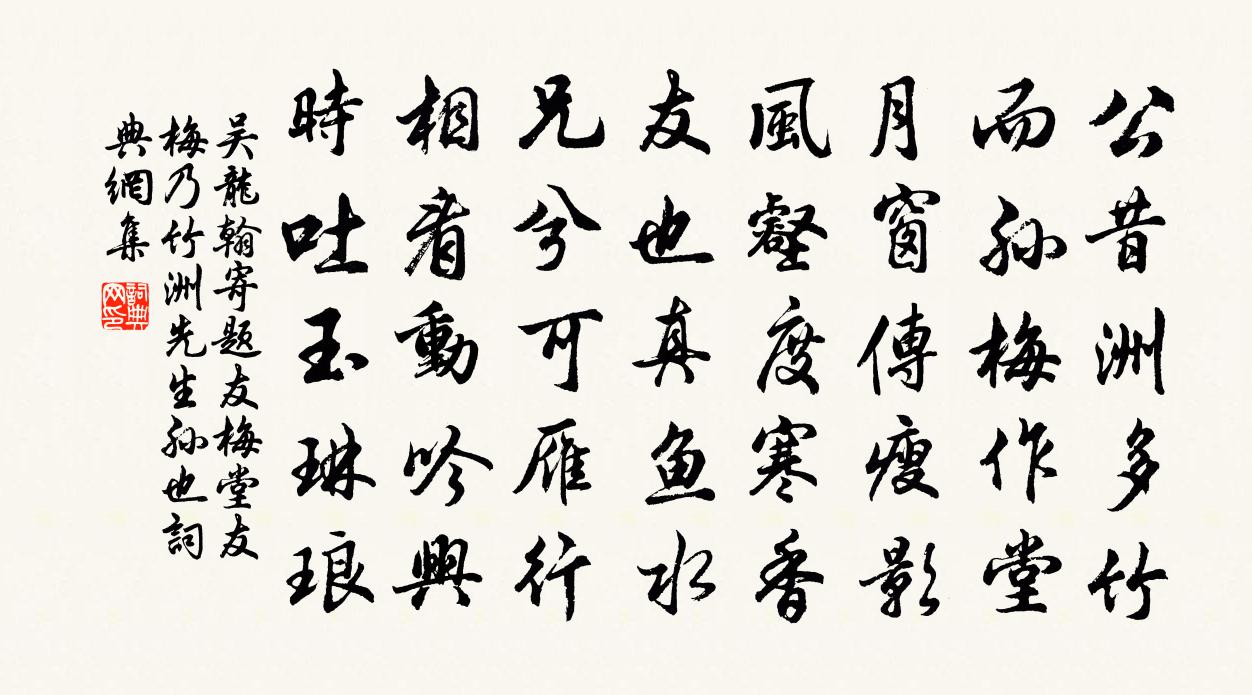 公昔洲多竹
而孙梅作堂
月窗傳瘦影
風壑度寒香
友也真鱼水
兄兮可雁行
相看動吟興
時吐玉琳琅
吴龍翰寄题友梅堂友
梅乃竹洲先生孙也詞
典網集
詞典网印